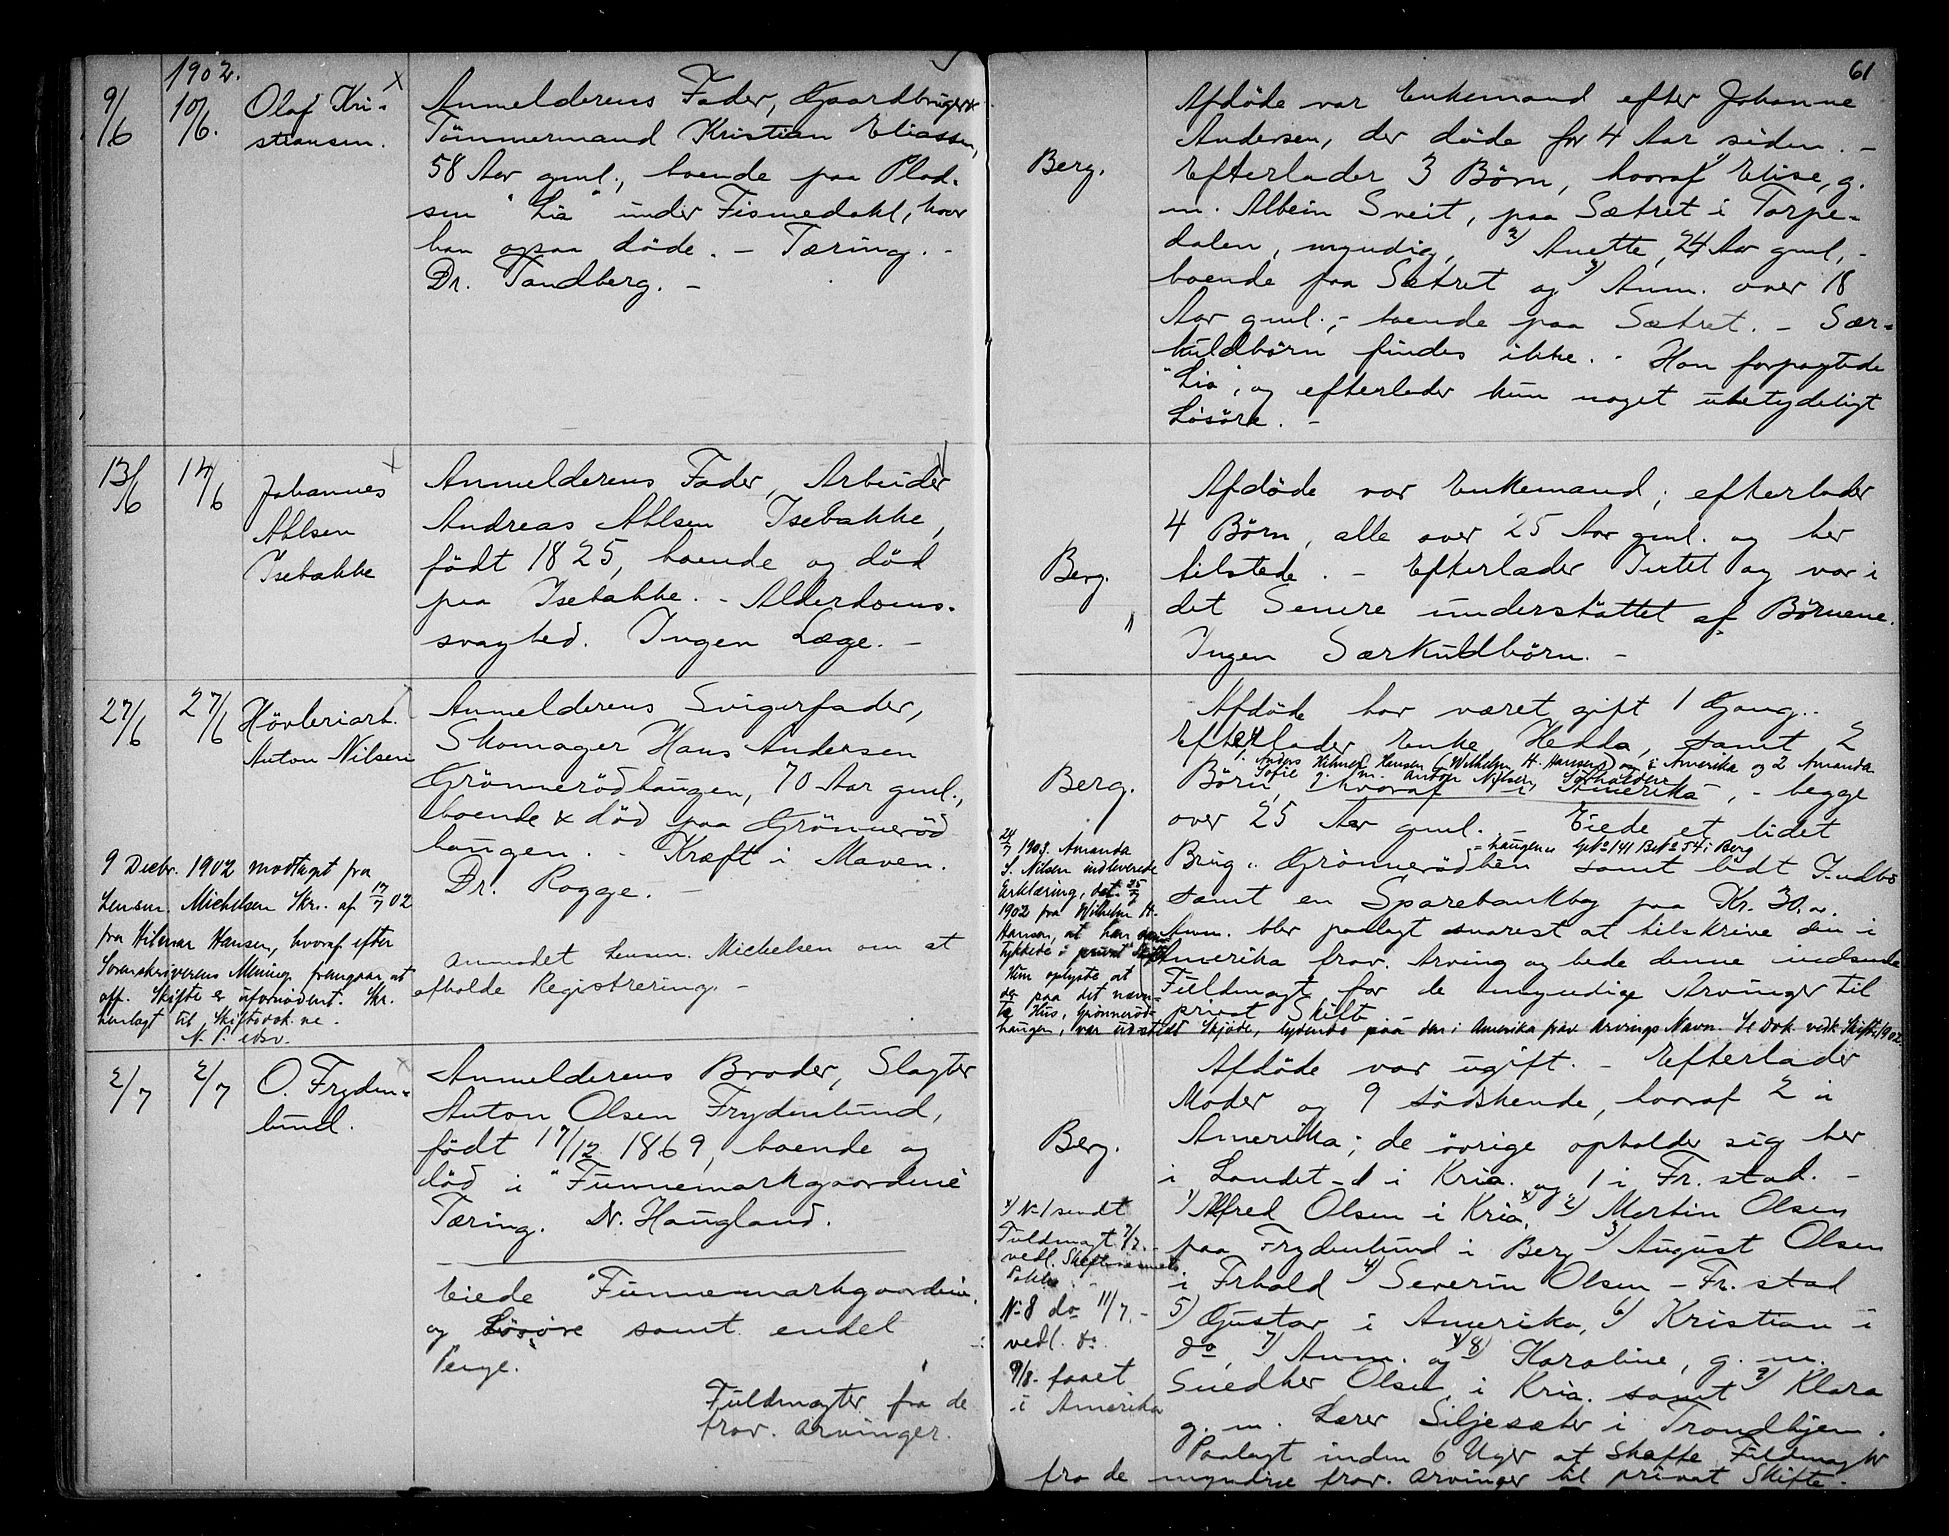 1902.
9/6
10/6.
Olaf Kri-
stiansen.
Anmelderens Fader, Gaardbruger &
Tömmermand Kristian Eliassen,
58 Aar gml., boende paa Plad-
sen "Lia" under Fismedahl, hvor
han ogsaa döde. – Tæring. –
Dr. Tandberg. –
13/6
14/6
Johannes
Ahlsen
Isebakke
Anmelderens Fader, Arbeider
Andreas Ahlsen Isebakke,
födt 1825, boende og död
paa Isebakke. – Alderdoms-
svaghed. Ingen Læge. –
27/6
27/6
Hövleriarb.
Anton Nilsen
Anmelderens Svigerfader,
Skomager Hans Andersen
Grönnerödhaugen, 70 Aar gml.,
boende & död paa Grönneröd
haugen. – Kræft i Maven.
Dr. Rogge. –
9 Decbr. 1902 modtaget fra
Lensm. Michelsen Skr. af 17/7 02
fra Hilmar Hansen, hvoraf efter
Sorenskriverens Mening fremgaar at
off. Skifte er ufornödent. Skr.
henlagt til Skiftedok.ne.
anmodet Lensm. Michelsen om at
afholde Registrering. –
2/7
2/7
O. Fryden-
lund.
Anmelderens Broder, Slagter
Anton Olsen Frydenlund,
födt 17/12 1869, boende og
död i "Funnemarkgaardene"
Tæring. Dr. Haugland.
Eiede "Funnemarkgaardene",
og Lösöre samt endel
Penge.
Fuldmagter fra de
frav. arvinger.
61
Berg.
Afdöde var Enkemand efter Johanne
Andersen, der döde for 4 Aar siden. –
Efterlader 3 Börn, hvoraf 1) Elise, g.
m. Albein Sveit, paa Sætret i Torpe-
dalen, myndig, 2) Anette, 24 Aar gml., –
boende paa Sætret og 3) Anm. over 18
Aar gml., – boende paa Sætret. – Sær-
kuldbörn findes ikke. – Han forpagtede
"Lia", og efterlader kun noget ubetydeligt
Lösöre. –
Berg.
Afdöde var Enkemand; efterlader
4 Börn, alle over 25 Aar gml. og her
tilstede. – Efterlader Intet og var i
det Senere understöttet af Börnene.
Ingen Særkuldbörn. –
Berg.
Afdöde har været gift 1 Gang..
Efterlader Enke Hedda, samt 2
1. Anders Hilmar Hansen (Wilhelm H. Hansen) i Amerika og 2 Amanda
Sofie g. m. Anton Nilsen, Sorhalden
Börn, hvoraf 1 i Amerika, – begge
over 25 Aar gml. – Eiede et lidet
-haugen Gno 141 Bno 54 i Berg
Brug "Grönnerödhen" samt lidt Indbo
samt en Sparebankbog paa Kr. 30.00.
Anm. blev paalagt snarest at tilskrive den i
Amerika frav. Arving og bede denne indsende
Fuldmagt for de myndige Arvinger til
privat Skifte
24/7 1903. Amanda
S. Nilsen indleverede
Erklæring, dat. 25/7
1902 fra Wilhelm H.
Hansen, at han sam-
tykkede i privat Skifte
Hun oplyste at
der paa det nævn-
te Hus, Grönneröd-
haugen, var udstedt Skjöde, lydende paa den i Amerika fravr Arvings Navn. Se Dok. vedk. Skiftet 1902.
Berg.
Afdöde var ugift. – Efterlader
Moder og 9 Södskende, hvoraf 2 i
Amerika; de övrige opholder sig her
i Landet – 1 i Kria. og 1 i Fr.stad. –
1) Alfred Olsen i Kria. x) 2) Martin Olsen
paa Frydenlund i Berg 3) August Olsen
i Frhald 4) Severin Olsen – Fr.stad
5) Gustav i Amerika, 6) Kristian i
do, 7) Anm. og x) 8) Karoline, g. m.
Snedker Olsen i Kria. samt 9) Klara
g. m. Lærer Siljesæter i Trondhjem.
Paalagt inden 6 Uger at skaffe Fuldmagter
fra de myndige frav. arvinger til privat Skifte.
x) No 1 sendt
Fuldmagt 7/7. –
vedl. Skiftevæsenets
Pakke
No 8 do 11/7. –
vedl. do
9/8. faaet
i Amerika